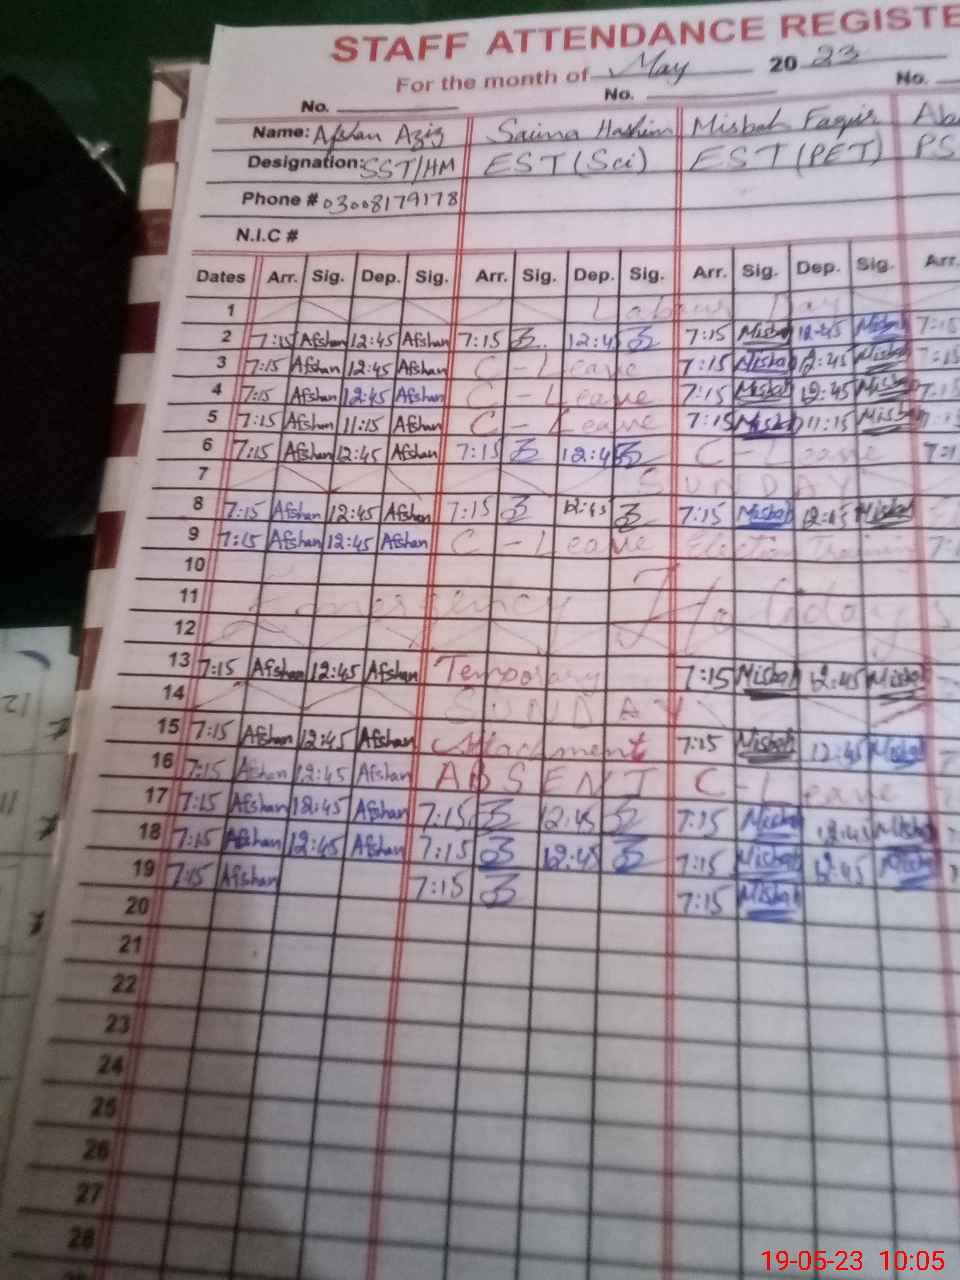 STAFF ATTENDANCE REGISTE
For the month of May 20 23
No. No. No.
Name: Afshan Aziz Saima Hashim Misbah Faqir
Designation: SST/HM EST (Sci) EST (PET) PS
Phone # 03008179178
N.I.C #
Dates Arr. Sig. Dep. Sig. Arr. Sig. Dep. Sig. Arr. Sig. Dep. Sig. Arr.
1 Labour Day
2 7:15 Afshan 12:45 Afshan 7:15 12:45 7:15 Misbah 12:45 Misbah 7:15
3 7:15 Afshan 12:45 Afshan C - Leave 7:15 Misbah 12:45 Misbah 7:15
4 7:15 Afshan 12:45 Afshan C - Leave 7:15 Misbah 12:45 Misbah 7:15
5 7:15 Afshan 11:15 Afshan C - Leave 7:15 Misbah 11:15 Misbah
6 7:15 Afshan 12:45 Afshan 7:15 12:45 C - Leave
7 SUNDAY
8 7:15 Afshan 12:45 Afshan 7:15 12:45 7:15 Misbah 12:45 Misbah
9 7:15 Afshan 12:45 Afshan C - Leave Election Training
10
11 Emergency Holidays
12
13 7:15 Afshan 12:45 Afshan Temporary 7:15 Misbah 12:45 Misbah
14 SUNDAY
15 7:15 Afshan 12:45 Afshan Attachment 7:15 Misbah 12:45 Misbah
16 7:15 Afshan 12:45 Afshan ABSENT C - Leave
17 7:15 Afshan 12:45 Afshan 7:15 12:45 7:15 Misbah 12:45 Misbah
18 7:15 Afshan 12:45 Afshan 7:15 12:45 7:15 Misbah 12:45 Misbah
19 7:15 Afshan 7:15 7:15 Misbah
20
21
22
23
24
25
26
27
28
19-05-23 10:05